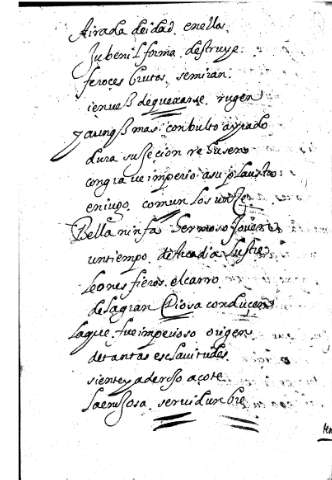 Airada deidad. en ellos.
Jubenil forma. destruye.
feroces brutos. se miran.
i en vez de quexarse. rugen
y aunq mas con bulto ayrado
dura sujecion rehusen
con grave imperio a su plaustro
en iugo. comun los unze.
Bella ninfa hermoso joven
un tiempo. de Arcadia lustre.
Leones fieros. el carro.
de la gran Diosa conducen
la que. fue imperioso origen
de tantas esclavitudes.
siente y aderoso açote.
la enojosa. servidunbre